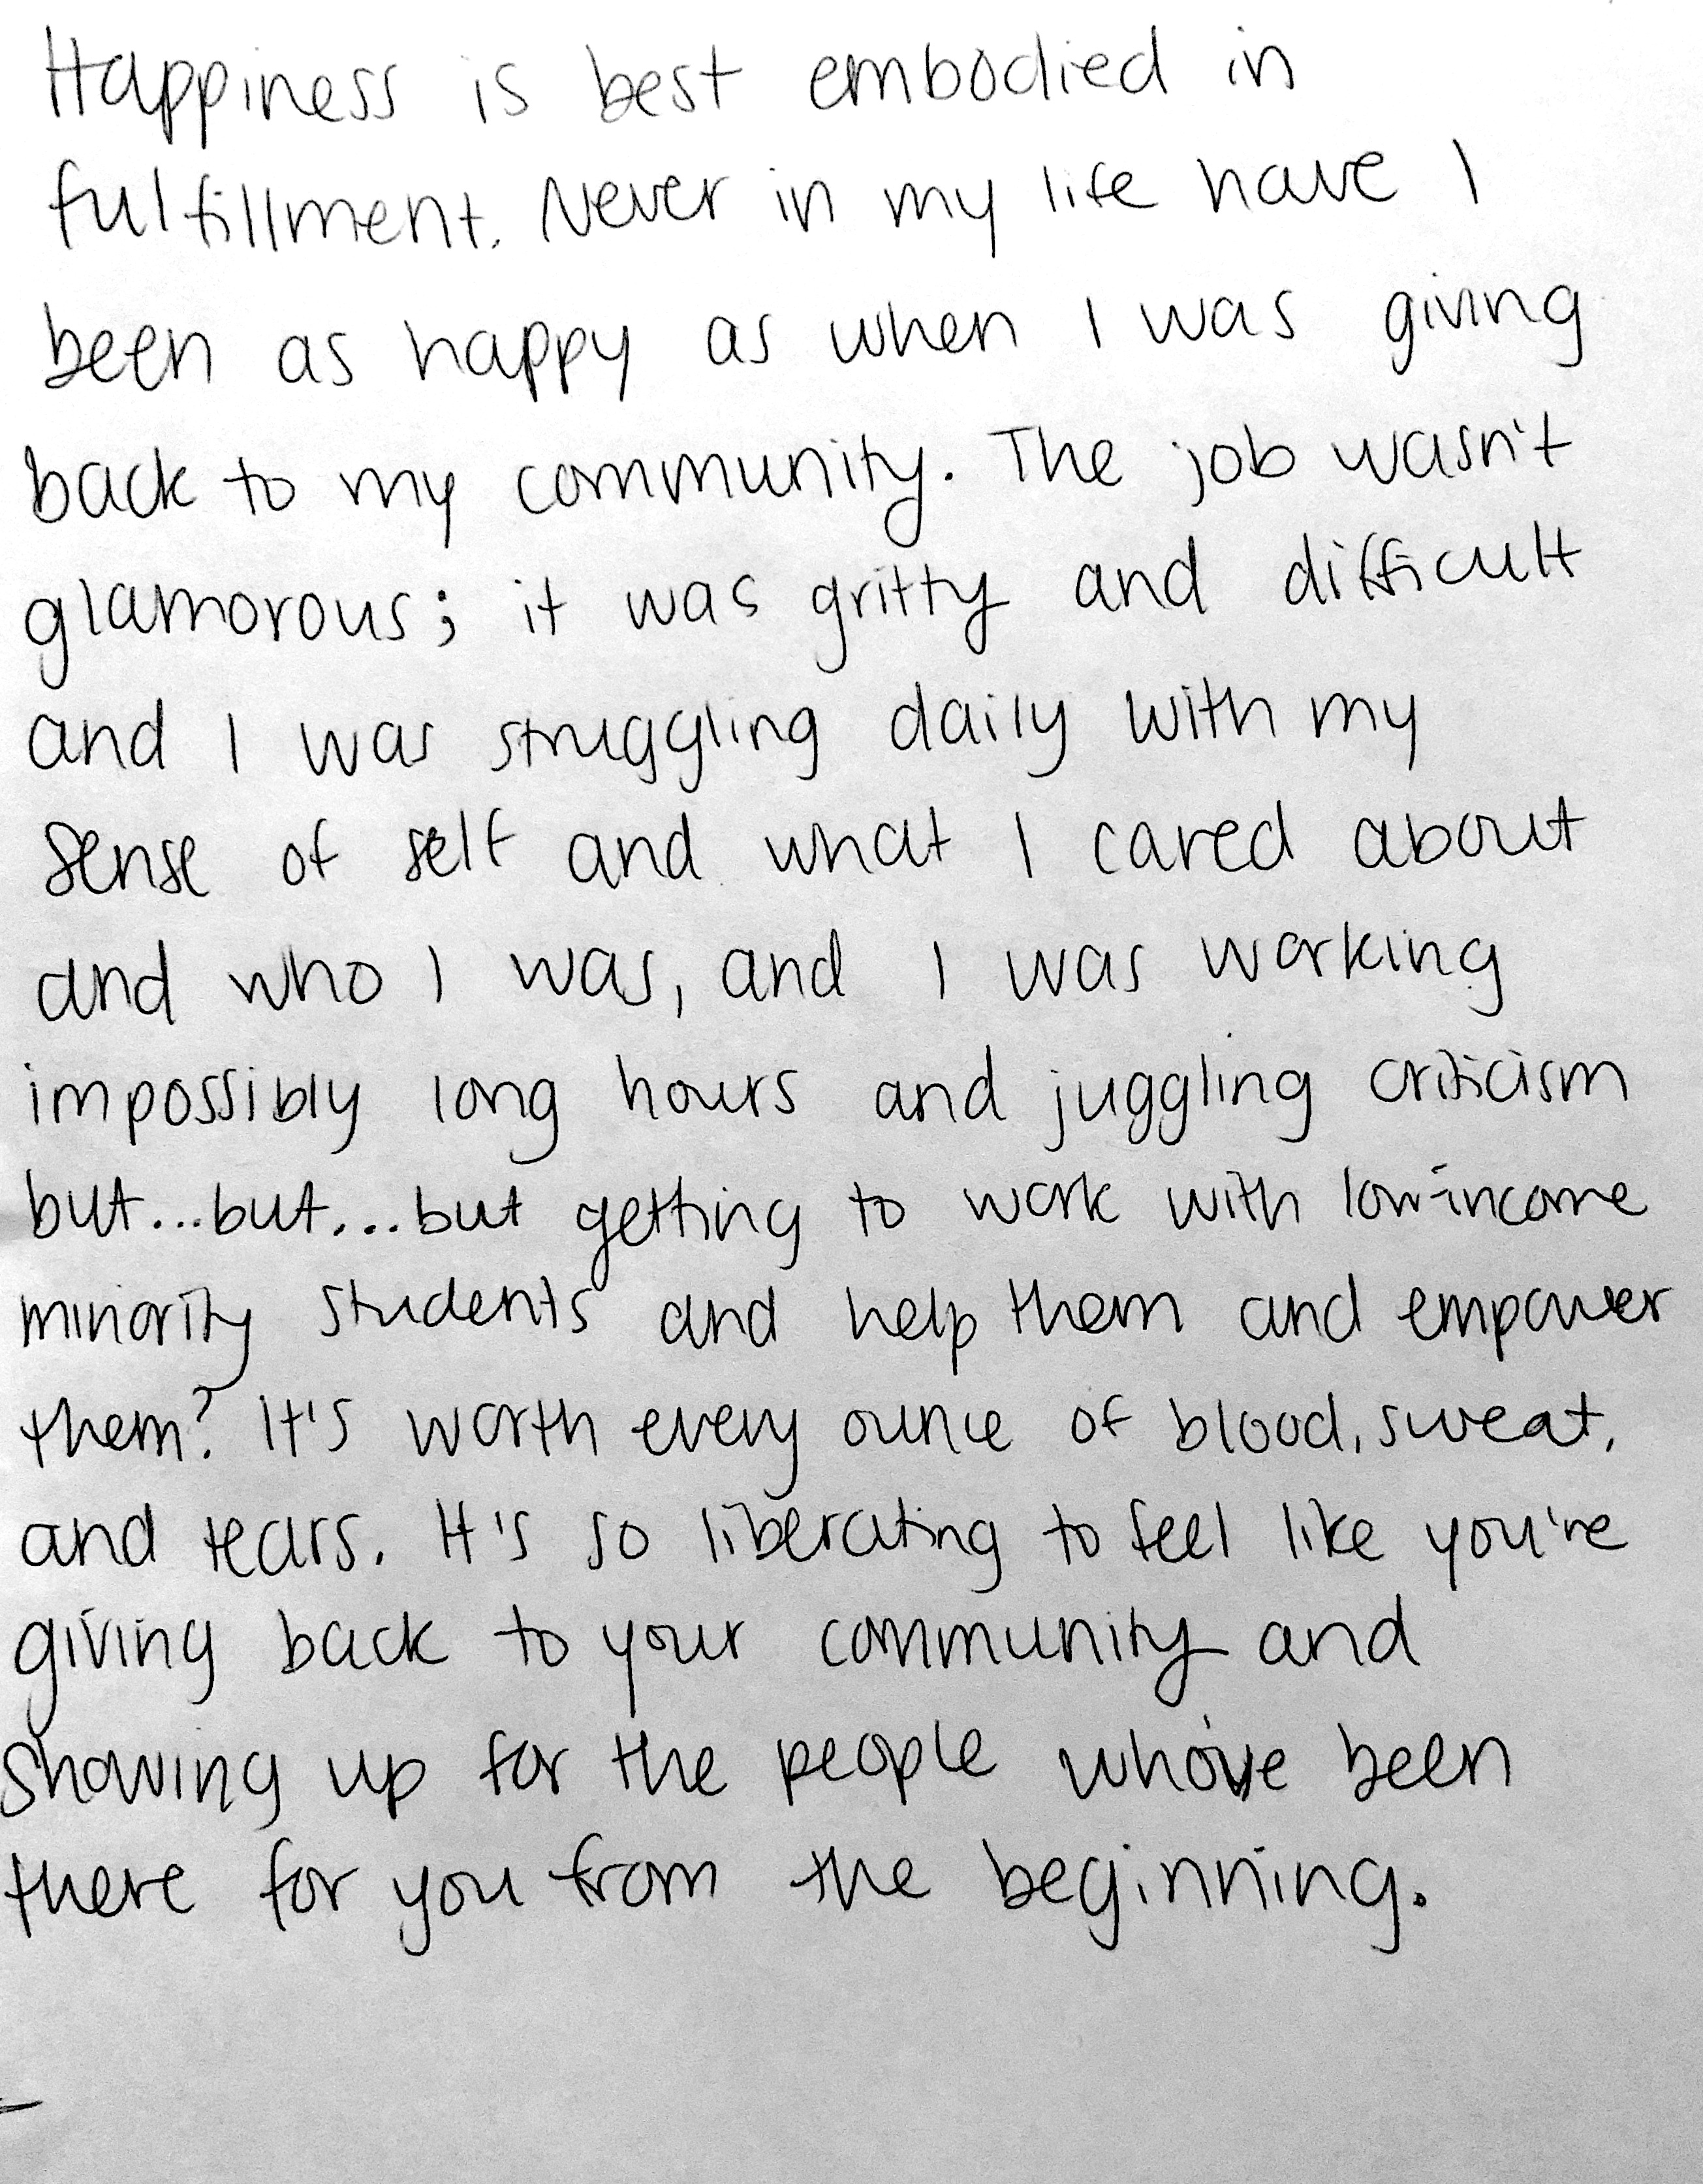 Happiness is best embodied in
fulfillment. Never in my life have I
been as happy as when I was giving
back to my community. The job wasn't
glamorous; it was gritty and difficult
and I was struggling daily with my
sense of self and what I cared about
and who I was, and I was working
impossibly long hours and juggling criticism
but...but...but getting to work with low-income
minority students and help them and empower
them? It's worth every ounce of blood, sweat,
and tears. It's so liberating to feel like you're
giving back to your community and
showing up for the people who've been
there for you from the beginning.